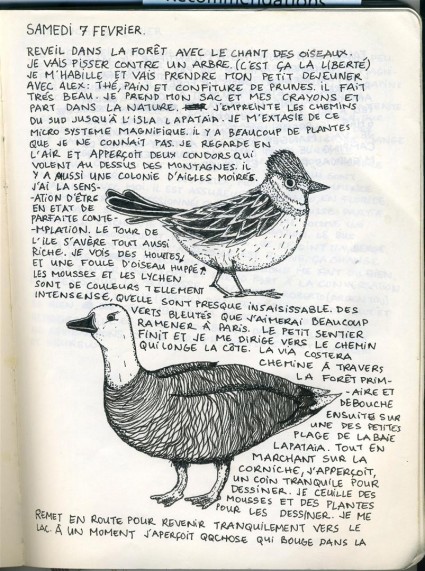 Recommendations
SAMEDI 7 FEVRIER.
REVEIL DANS LA FORÊT AVEC LE CHANT DES OISEAUX.
JE VAIS PISSER CONTRE UN ARBRE. (C'EST ÇA LA LIBERTÉ)
JE M'HABILLE ET VAIS PRENDRE MON PETIT DEJEUNER
AVEC ALEX: THÉ, PAIN ET CONFITURE DE PRUNES. IL FAIT
TRÉS BEAU. JE PREND MON SAC ET MES CRAYONS ET
PART DANS LA NATURE. J'EMPREINTE LES CHEMINS
DU SUD JUSQU'À L'ISLA LAPATAIA. JE M'EXTASIE DE CE
MICRO SYSTEME MAGNIFIQUE. IL Y A BEAUCOUP DE PLANTES
QUE JE NE CONNAIT PAS. JE REGARDE EN
L'AIR ET APPERÇOIT DEUX CONDORS QUI
VOLENT AU DESSUS DES MONTAGNES. IL
Y A AUSSI UNE COLONIE D'AIGLES MOIRÉS.
J'AI LA SENS-
-ATION D'ÊTRE
EN ETAT DE
PARFAITE CONTE-
-MPLATION. LE TOUR DE
L'ILE S'AVÈRE TOUT AUSSI
RICHE. JE VOIS DES HOUITES
ET UNE FOULE D'OISEAU HUPPÉ
LES MOUSSES ET LES LYCHEN
SONT DE COULEURS TELLEMENT
INTENSENSE, QU'ELLE SONT PRESQUE INSAISISSABLE. DES
VERTS BLEUTÉS QUE J'AIMERAI BEAUCOUP
RAMENER À PARIS. LE PETIT SENTIER
FINIT ET JE ME DIRIGE VERS LE CHEMIN
QUI LONGE LA CÔTE. LA VIA COSTERA
CHEMINE À TRAVERS
LA FORÊT PRIM-
-AIRE ET
DÉBOUCHE
ENSUITE SUR
UNE DES PETITES
PLAGE DE LA BAIE
LAPATAIA. TOUT EN
MARCHANT SUR LA
CORNICHE, J'APPERÇOIT,
UN COIN TRANQUILE POUR
DESSINER. JE CEUILLE DES
MOUSSES ET DES PLANTES
POUR LES DESSINER. JE ME
REMET EN ROUTE POUR REVENIR TRANQUILEMENT VERS LE
LAC. À UN MOMENT J'APERÇOIT QQCHOSE QUI BOUGE DANS LA